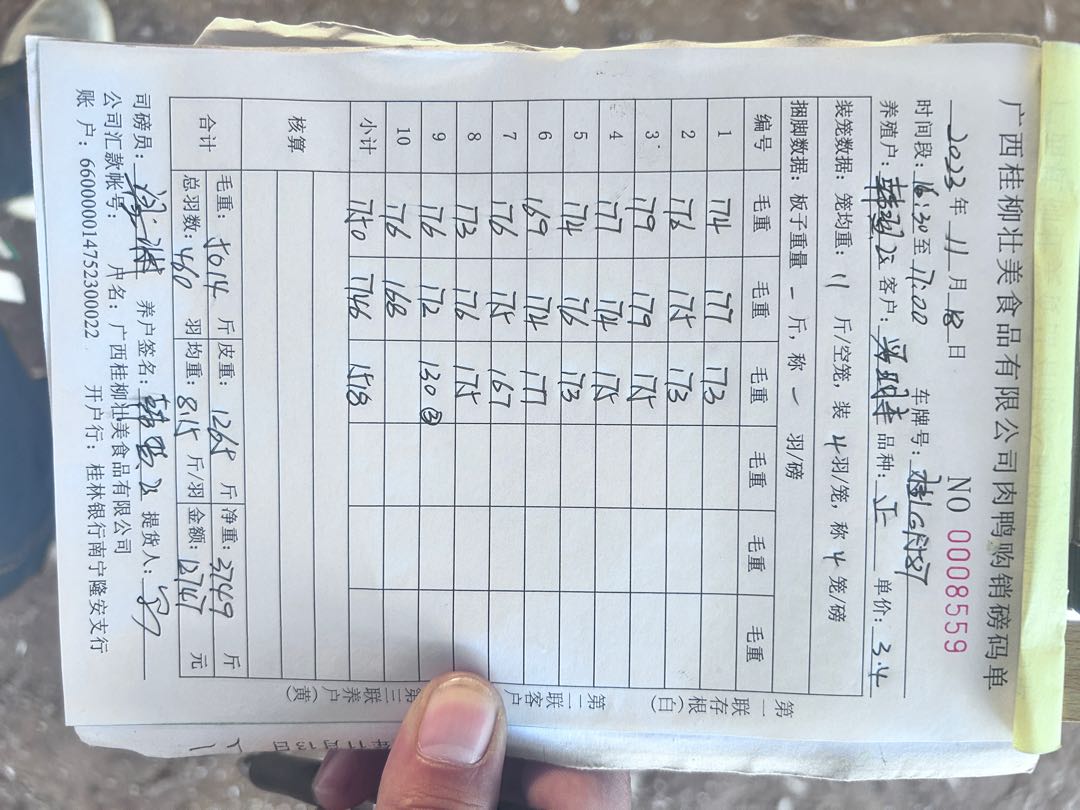 广西桂柳壮美食品有限公司肉鸭购销磅码单
NO 0008559
2023年11月18日 车牌号:
时间段:16:30至17:00
养殖户: 客户: 品种: 单价:3.4
装笼数据: 笼均重: 11 斤/空笼, 装 4 羽/笼, 称 4 笼/磅
捆脚数据: 板子重量 - 斤, 称 - 羽/磅
编号 毛重 毛重 毛重 毛重 毛重 毛重
1 174 177 173
2 176 175 173
3 179 179 175
4 177 174 175
5 174 176 173
6 169 174 177
7 176 175 167
8 173 176 175
9 176 172 130③
10 176 168
小计 1750 1746 1518
核算
合计 毛重: 5014 斤 皮重: 1265 斤 净重: 3749 斤
总羽数: 460 羽 羽均重: 8.15 斤/羽 金额: 12747 元
司磅员: 养户签名: 提货人:
公司汇款帐号: 户名:广西桂柳壮美食品有限公司
账 户: 660000014752300022 开户行: 桂林银行南宁隆安支行
第一联存根(白)
第二联客户
第三联养户(黄)